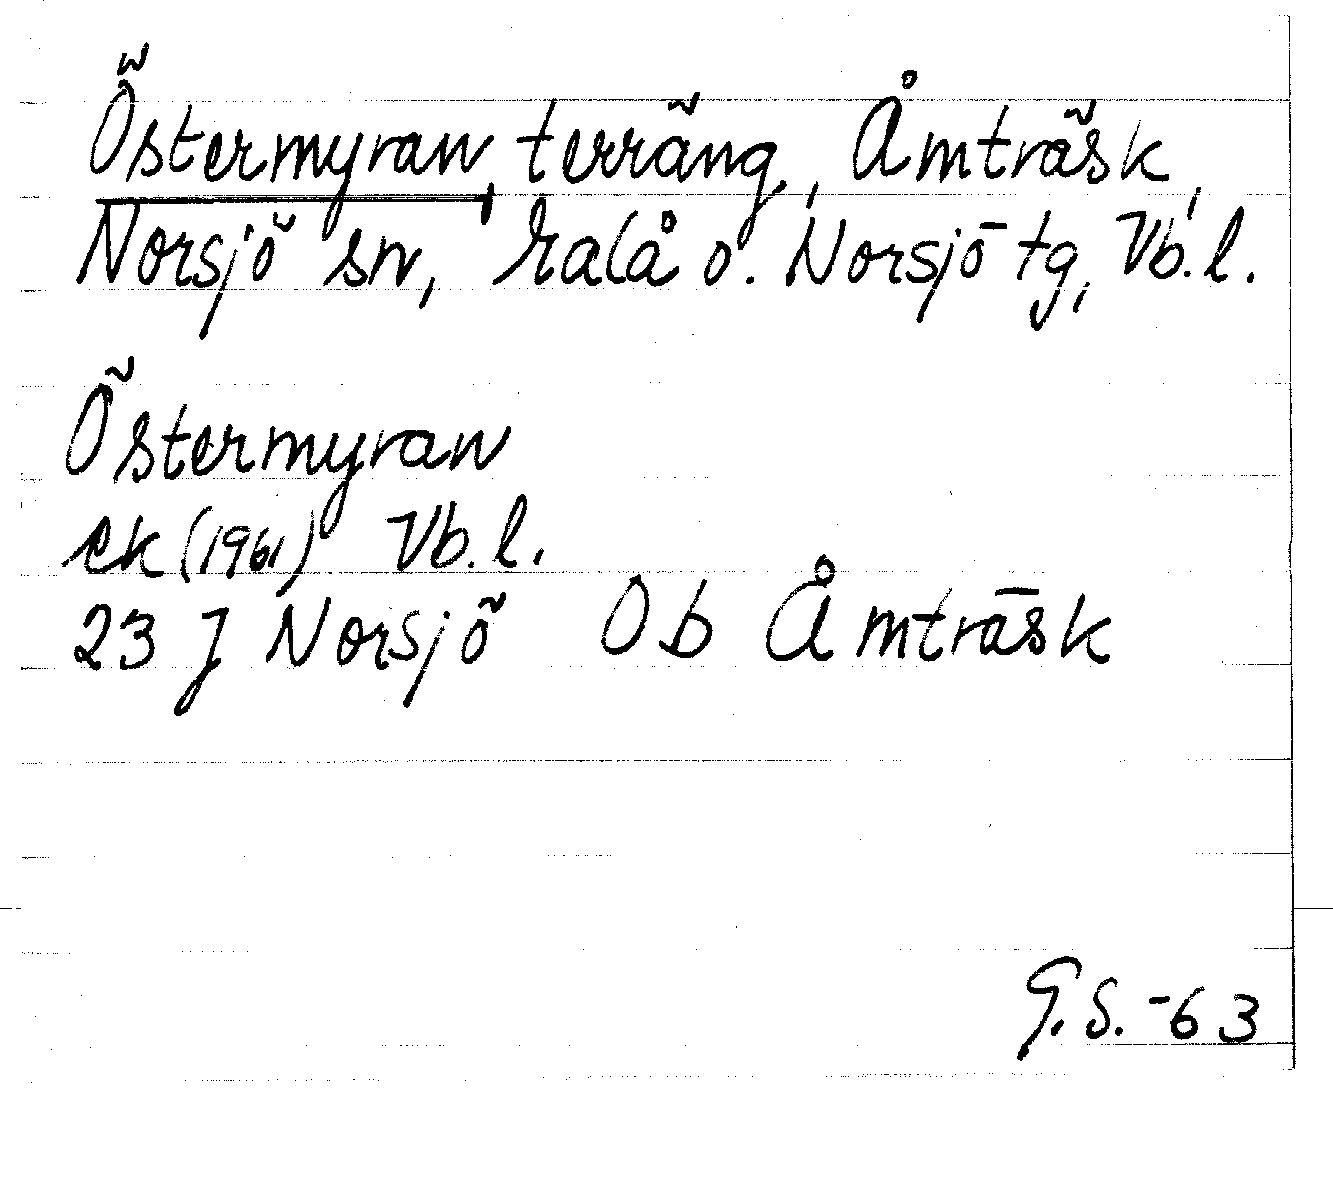 Östermyran, terräng, Åmträsk,
Norsjö sn, Malå o. Norsjö tg, Vb. l.
Östermyran
ek (1961) Vb. l.
23 J Norsjö 0b Åmträsk
G.S. -63